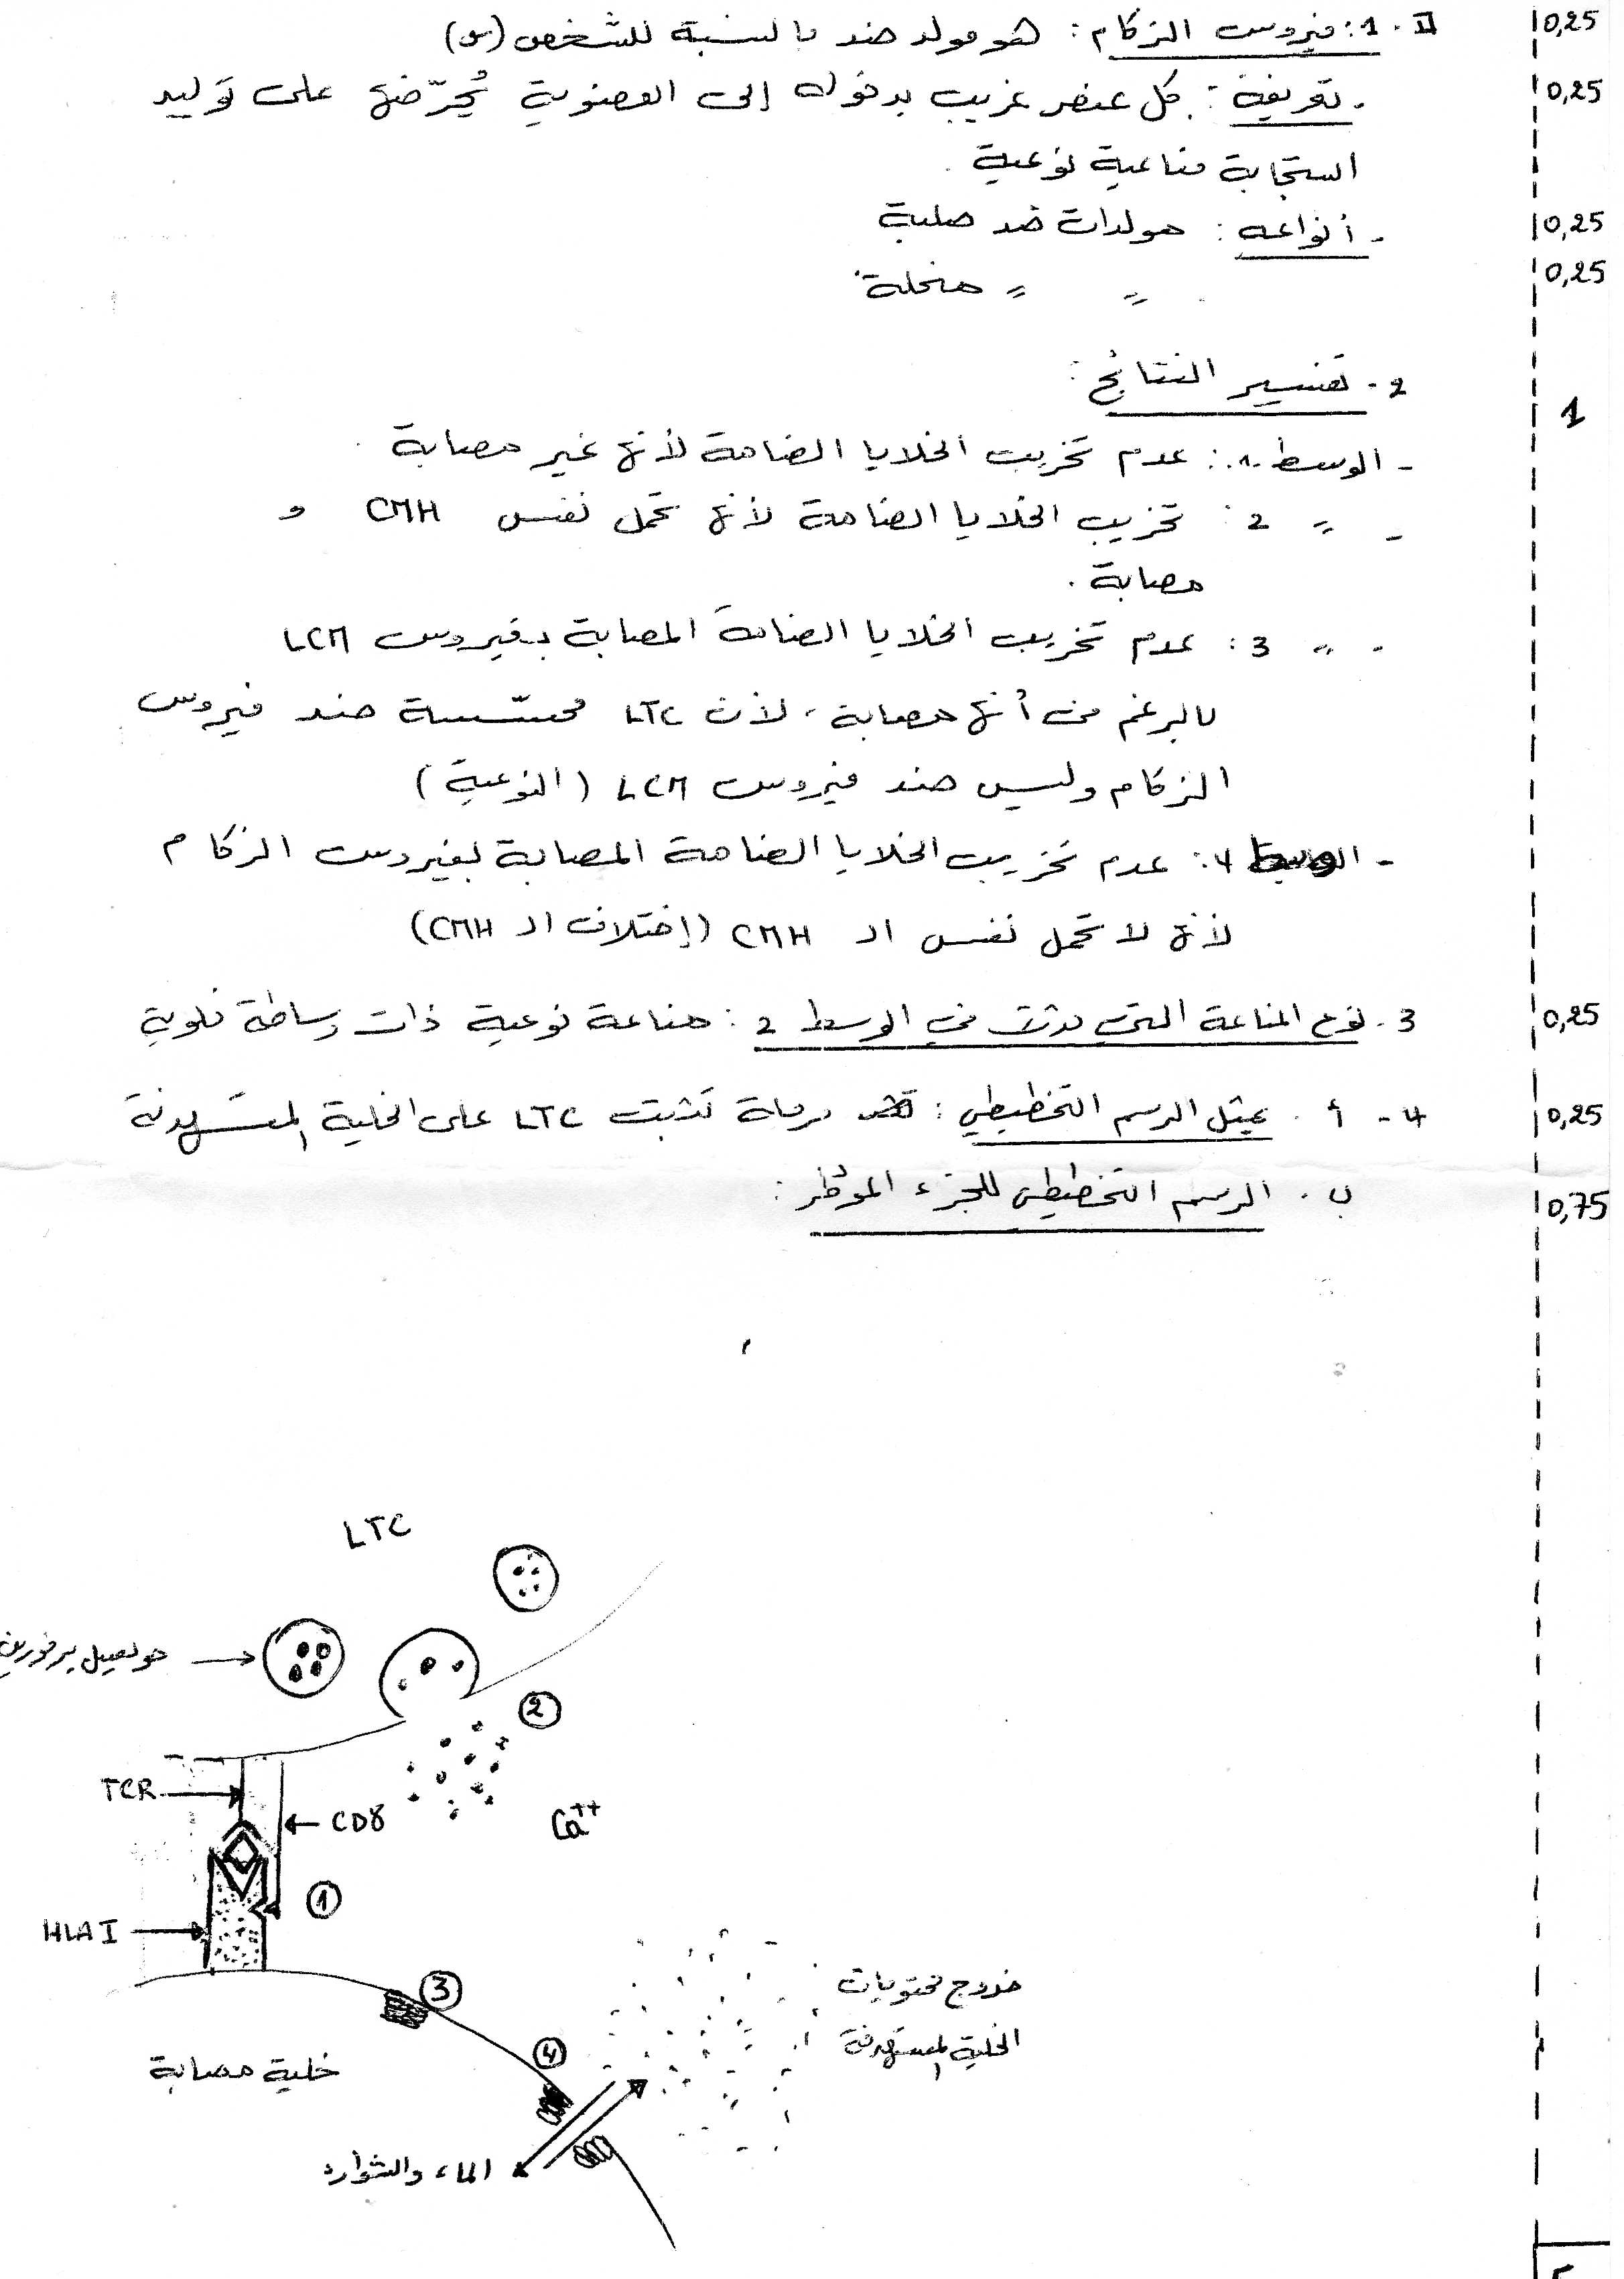 II . 1 : فيروس الزكام : هو مولد ضد بالنسبة للشخص (س) 0,25
- تعريفه : كل عنصر غريب بدخوله إلى العضوية يُحرّضها على توليد 0,25
استجابة مناعية نوعية .
- أنواعه : مولدات ضد صلبة 0,25
" " منحلة . 0,25
2 - تفسير النتائج : 1
- الوسط 1 : عدم تخريب الخلايا الضامة لأنها غير مصابة .
- " 2 : تخريب الخلايا الضامة لأنها تحمل نفس CMH و
مصابة .
- " 3 : عدم تخريب الخلايا الضامة المصابة بفيروس LCM
بالرغم من أنها مصابة ، لأن LTC محسّسة ضد فيروس
الزكام وليس ضد فيروس LCM (النوعية)
- الوسط 4 : عدم تخريب الخلايا الضامة المصابة بفيروس الزكام
لأنها لا تحمل نفس الـ CMH (إختلاف الـ CMH)
3 - نوع المناعة التي حدثت في الوسط 2 : مناعة نوعية ذات وساطة خلوية 0,25
4 - أ . يمثل الرسم التخطيطي : مرحلة تثبت LTC على الخلية المستهدفة 0,25
ب . الرسم التخطيطي للجزء المؤطر : 0,75
LTC
حويصل برفورين
2
TCR
CD8
Ca++
1
HLA I
3
خروج محتويات
الخلية المستهدفة
4
خلية مصابة
الماء والشوارد